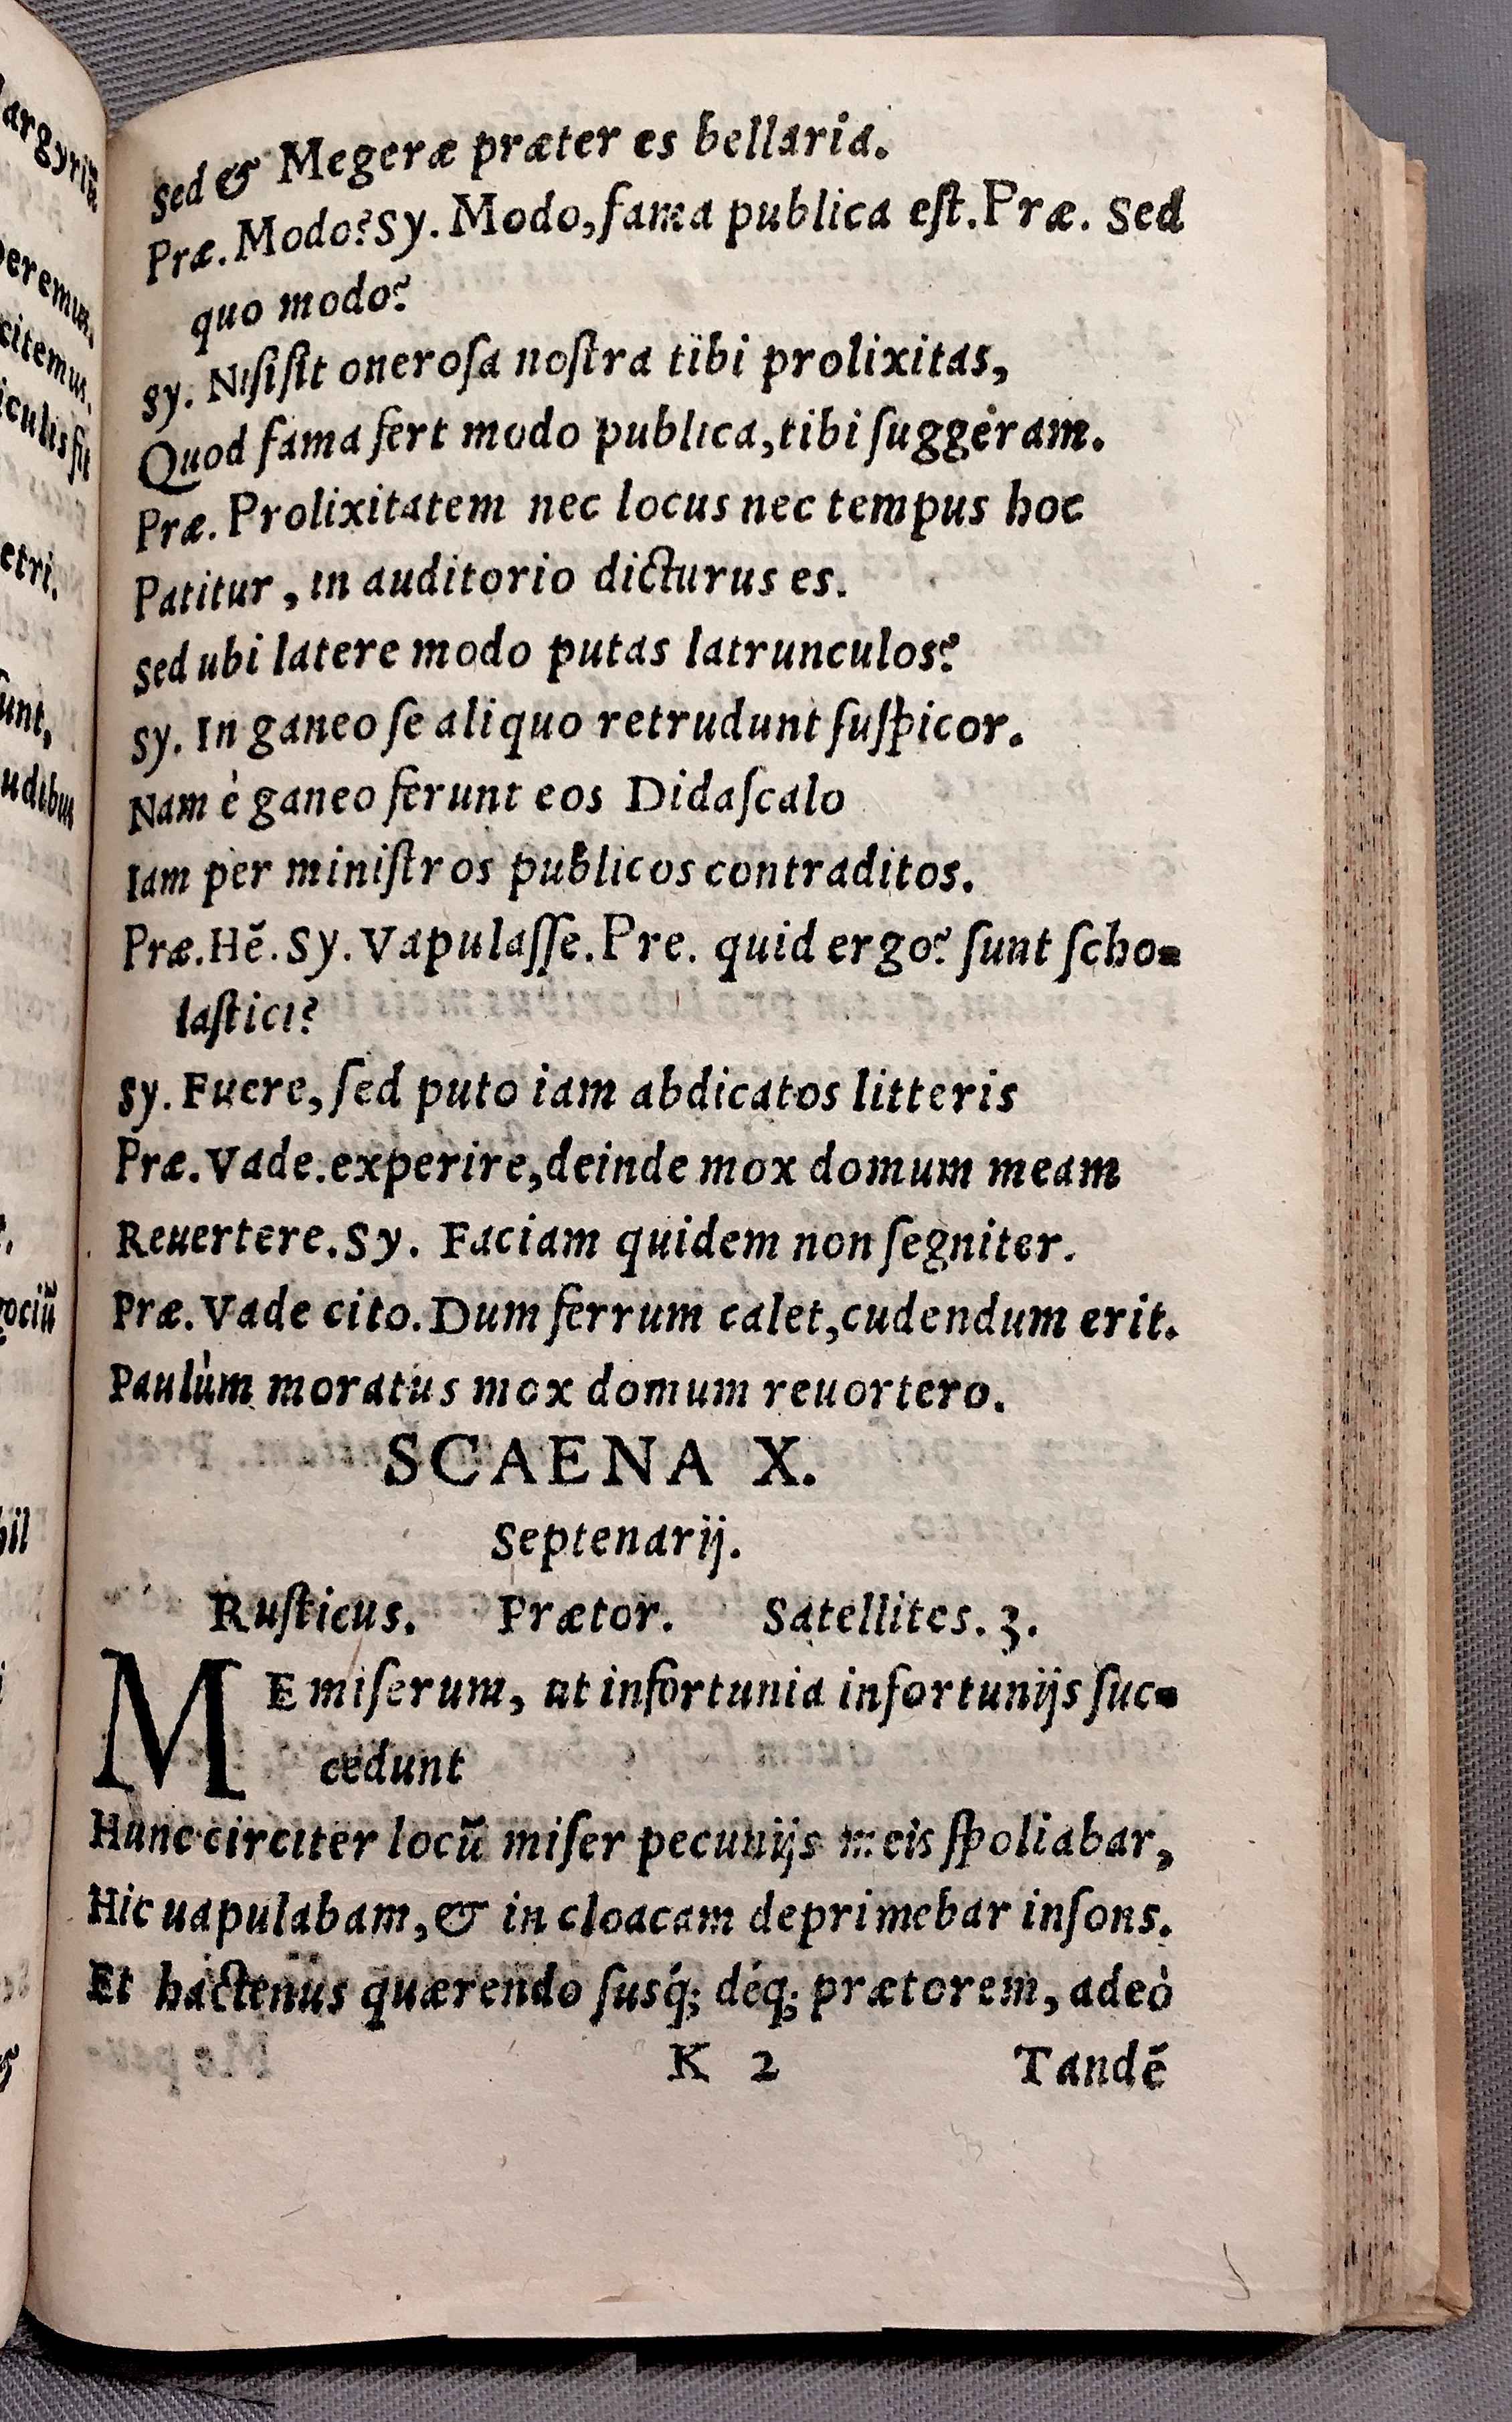 Sed & Megeræ præter es bellaria.
Præ. Modo? Sy. Modo, fama publica eſt. Præ. Sed
quo modo?
Sy. Niſi ſit oneroſa noſtra tibi prolixitas,
Quod fama fert modo publica, tibi ſuggeram.
Præ. Prolixitatem nec locus nec tempus hoc
Patitur, in auditorio dicturus es.
Sed ubi latere modo putas latrunculos?
Sy. In ganeo ſe aliquo retrudunt ſuſpicor.
Nam è ganeo ferunt eos Didaſcalo
Iam per miniſtros publicos contraditos.
Præ. Hē. Sy. Vapulaſſe. Pre. quid ergo? ſunt ſcho-
laſtici?
Sy. Fuere, ſed puto iam abdicatos litteris
Præ. Vade. experire, deinde mox domum meam
Reuertere. Sy. Faciam quidem non ſegniter.
Præ. Vade cito. Dum ferrum calet, cudendum erit.
Paulùm moratus mox domum reuortero.
SCAENA X.
Septenarij.
Ruſticus. Prætor. Satellites. 3.
ME miſerum, ut infortunia infortunijs ſuc-
cedunt
Hunc circiter locū miſer pecunijs meis ſpoliabar,
Hic uapulabam, & in cloacam deprimebar inſons.
Et hactenus quærendo ſusq́; déq; prætorem, adeò
K 2 Tandē